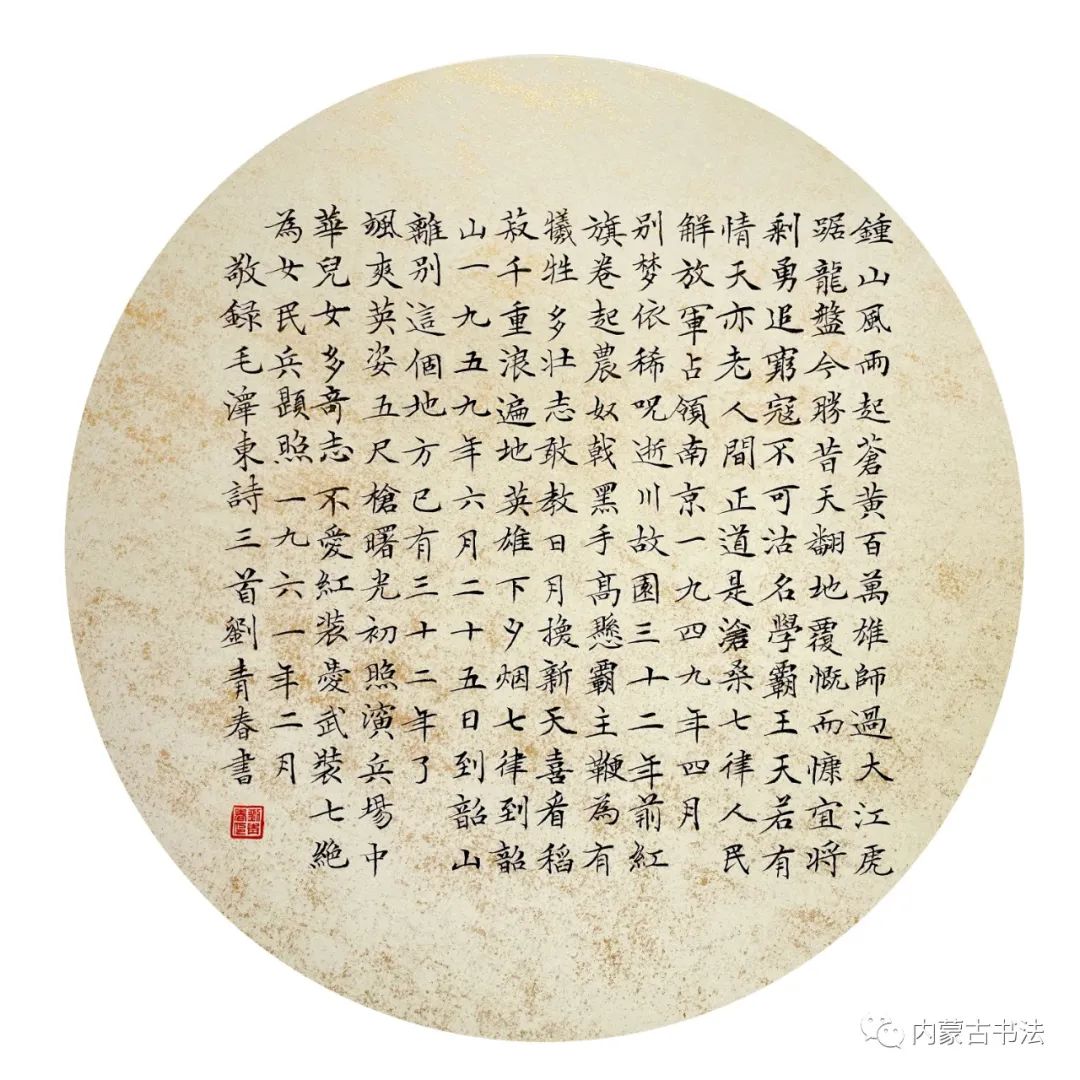 鍾山風雨起蒼黃百萬雄師過大江虎
踞龍盤今勝昔天翻地覆慨而慷宜將
剩勇追窮寇不可沽名學霸王天若有
情天亦老人間正道是滄桑七律人民
解放軍占領南京一九四九年四月
別梦依稀呪逝川故園三十二年前紅
旗卷起農奴戟黑手高懸霸主鞭為有
犧牲多壯志敢教日月換新天喜看稻
菽千重浪遍地英雄下夕烟七律到韶
山一九五九年六月二十五日到韶山
離別這個地方已有三十二年了
颯爽英姿五尺槍曙光初照演兵場中
華兒女多奇志不愛紅裝愛武裝七絕
為女民兵題照一九六一年二月
敬録毛澤東詩三首劉青春書
内蒙古书法